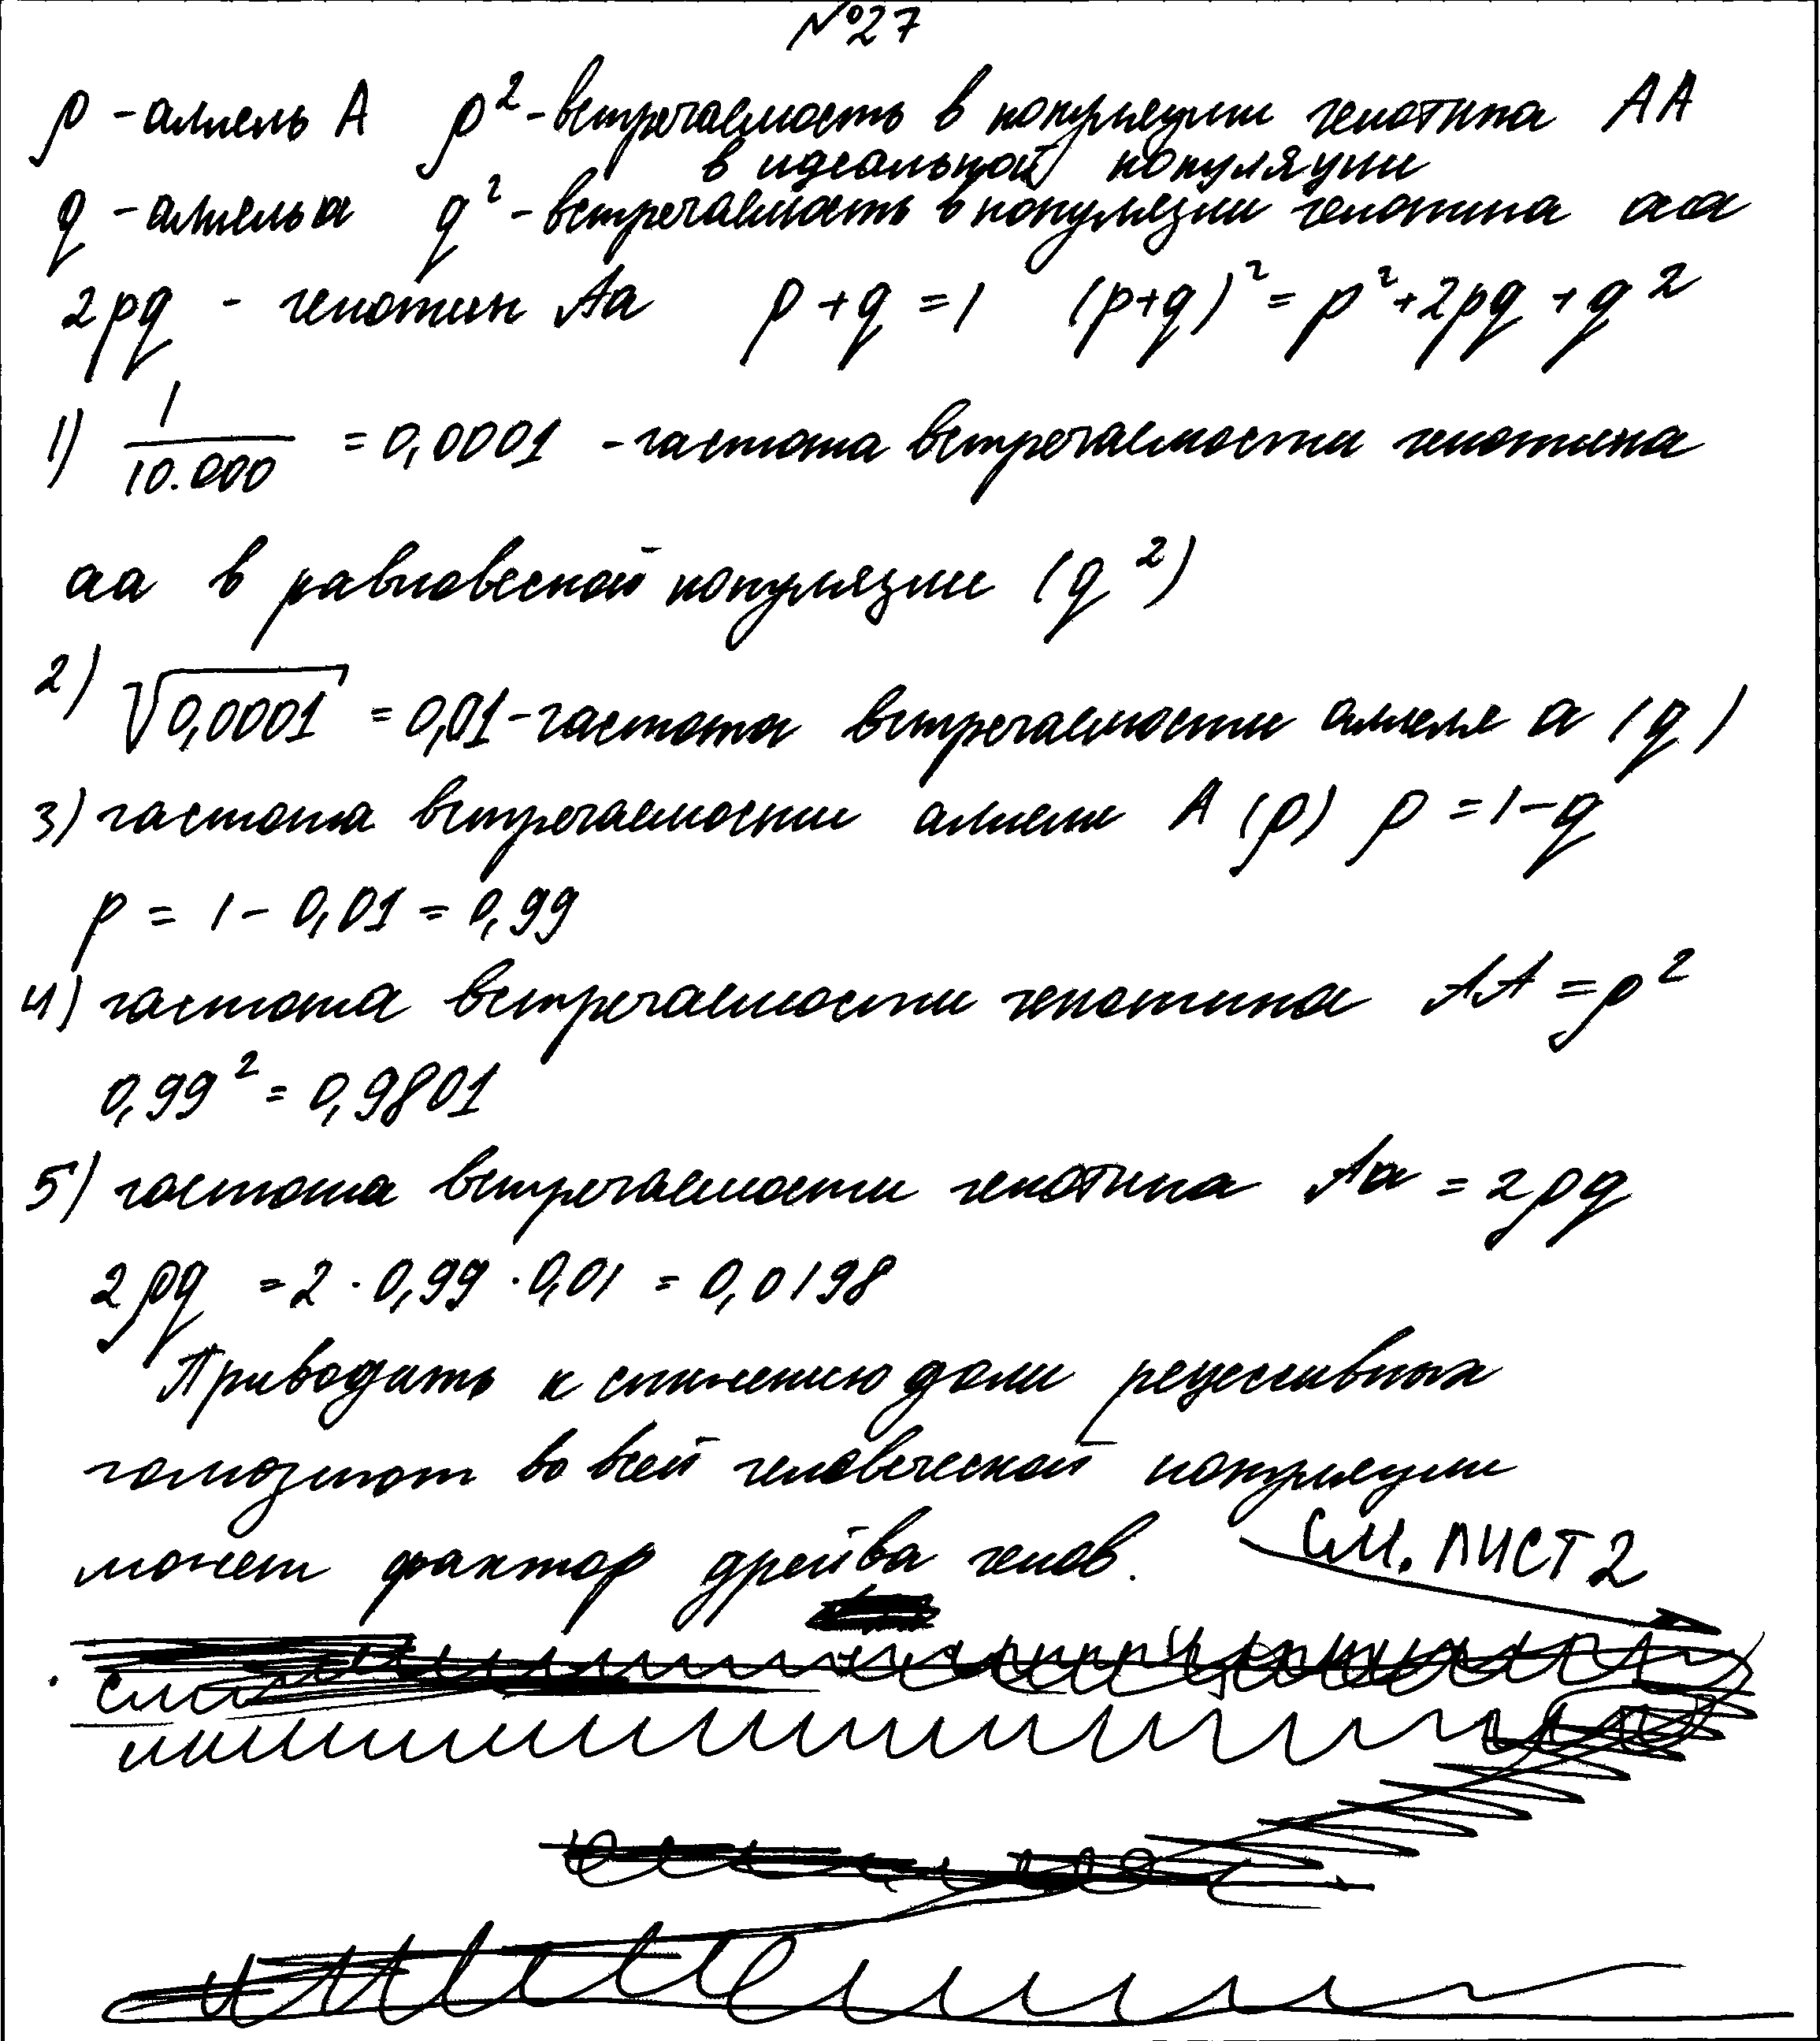 №27
p - аллель A p² - встречаемость в популяции генотипа AA
в идеальной популяции
q - аллель a q² - встречаемость в популязии генотипа aa
2pq - генотип Aa p + q = 1 (p+q)² = p² + 2pq + q²
1) 1/10.000 = 0,0001 - частота встречаемости генотипа
aa в равновесной популязии (q²)
2) √0,0001 = 0,01 - частота встречаемости аллеля a (q)
3) частота встречаемости аллели A (p) p = 1 - q
p = 1 - 0,01 = 0,99
4) частота встречаемости генотипа AA = p²
0,99² = 0,9801
5) частота встречаемости генотипа Aa = 2pq
2pq = 2 · 0,99 · 0,01 = 0,0198
Приводить к снижению доли рецессивных
гомозигот во всей человеческой популяции
может фактор дрейва генов.
см. ЛИСТ 2